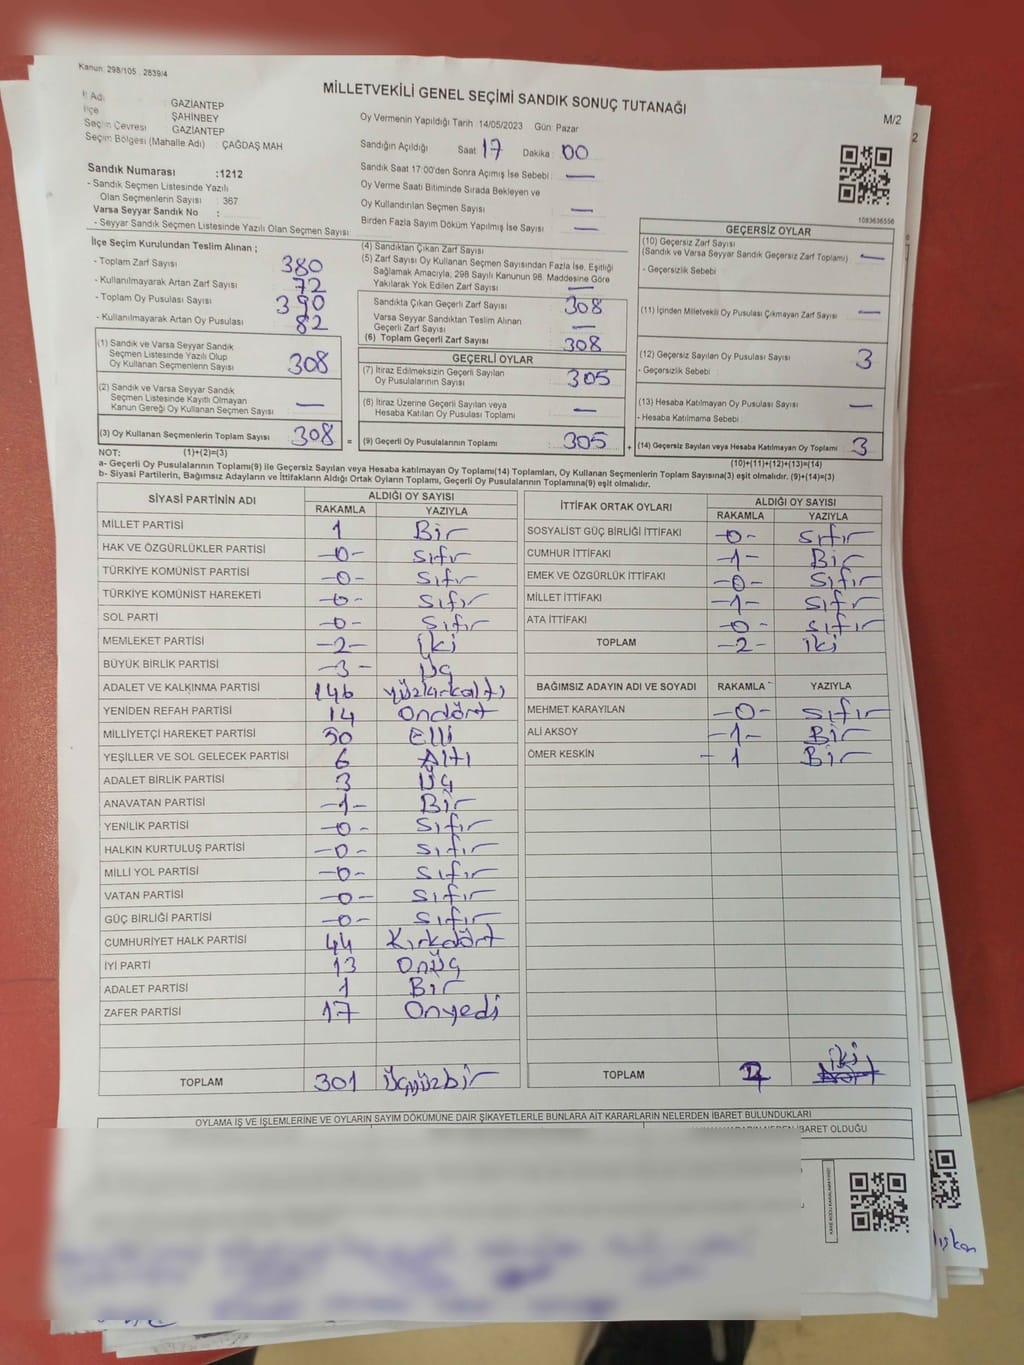 Kanun: 298/105 . 2839/4
MİLLETVEKİLİ GENEL SEÇİMİ SANDIK SONUÇ TUTANAĞI
M/2
İl Adı GAZİANTEP
İlçe ŞAHİNBEY
Seçim Çevresi GAZİANTEP
Seçim Bölgesi (Mahalle Adı) : ÇAĞDAŞ MAH
Oy Vermenin Yapıldığı Tarih : 14/05/2023 Gün: Pazar
Sandığın Açıldığı Saat 17 Dakika : 00
Sandık Saat 17:00'den Sonra Açılmış İse Sebebi : —
Oy Verme Saati Bitiminde Sırada Bekleyen ve
Oy Kullandırılan Seçmen Sayısı : —
Birden Fazla Sayım Döküm Yapılmış İse Sayısı : —
Sandık Numarası :1212
- Sandık Seçmen Listesinde Yazılı
Olan Seçmenlerin Sayısı : 367
Varsa Seyyar Sandık No :
- Seyyar Sandık Seçmen Listesinde Yazılı Olan Seçmen Sayısı
1083636556
İlçe Seçim Kurulundan Teslim Alınan ;
- Toplam Zarf Sayısı 380
- Kullanılmayarak Artan Zarf Sayısı 72
- Toplam Oy Pusulası Sayısı 390
- Kullanılmayarak Artan Oy Pusulası 82
(1) Sandık ve Varsa Seyyar Sandık
Seçmen Listesinde Yazılı Olup
Oy Kullanan Seçmenlerin Sayısı 308
(2) Sandık ve Varsa Seyyar Sandık
Seçmen Listesinde Kayıtlı Olmayan
Kanun Gereği Oy Kullanan Seçmen Sayısı —
(3) Oy Kullanan Seçmenlerin Toplam Sayısı 308 =
(4) Sandıktan Çıkan Zarf Sayısı
(5) Zarf Sayısı Oy Kullanan Seçmen Sayısından Fazla İse, Eşitliği
Sağlamak Amacıyla, 298 Sayılı Kanunun 98. Maddesine Göre
Yakılarak Yok Edilen Zarf Sayısı —
Sandıkta Çıkan Geçerli Zarf Sayısı 308
Varsa Seyyar Sandıktan Teslim Alınan
Geçerli Zarf Sayısı —
(6) Toplam Geçerli Zarf Sayısı 308
GEÇERLİ OYLAR
(7) İtiraz Edilmeksizin Geçerli Sayılan
Oy Pusulalarının Sayısı 305
(8) İtiraz Üzerine Geçerli Sayılan veya
Hesaba Katılan Oy Pusulası Toplamı —
(9) Geçerli Oy Pusulalarının Toplamı 305 +
GEÇERSİZ OYLAR
(10) Geçersiz Zarf Sayısı
(Sandık ve Varsa Seyyar Sandık Geçersiz Zarf Toplamı) —
- Geçersizlik Sebebi
(11) İçinden Milletvekili Oy Pusulası Çıkmayan Zarf Sayısı —
(12) Geçersiz Sayılan Oy Pusulası Sayısı 3
- Geçersizlik Sebebi
(13) Hesaba Katılmayan Oy Pusulası Sayısı —
- Hesaba Katılmama Sebebi
(14) Geçersiz Sayılan veya Hesaba Katılmayan Oy Toplamı 3
NOT: (1)+(2)=(3)
(10)+(11)+(12)+(13)=(14)
a- Geçerli Oy Pusulalarının Toplamı(9) ile Geçersiz Sayılan veya Hesaba katılmayan Oy Toplamı(14) Toplamları, Oy Kullanan Seçmenlerin Toplam Sayısına(3) eşit olmalıdır. (9)+(14)=(3)
b- Siyasi Partilerin, Bağımsız Adayların ve İttifakların Aldığı Ortak Oyların Toplamı, Geçerli Oy Pusulalarının Toplamına(9) eşit olmalıdır.
SİYASİ PARTİNİN ADI ALDIĞI OY SAYISI
RAKAMLA YAZIYLA
MİLLET PARTİSİ 1 Bir
HAK VE ÖZGÜRLÜKLER PARTİSİ -0- Sıfır
TÜRKİYE KOMÜNİST PARTİSİ -0- Sıfır
TÜRKİYE KOMÜNİST HAREKETİ -0- Sıfır
SOL PARTİ -0- Sıfır
MEMLEKET PARTİSİ -2- İki
BÜYÜK BİRLİK PARTİSİ -3- Üç
ADALET VE KALKINMA PARTİSİ 146 yüzkırkaltı
YENİDEN REFAH PARTİSİ 14 Ondört
MİLLİYETÇİ HAREKET PARTİSİ 50 Elli
YEŞİLLER VE SOL GELECEK PARTİSİ 6 Altı
ADALET BİRLİK PARTİSİ 3 Üç
ANAVATAN PARTİSİ -1- Bir
YENİLİK PARTİSİ -0- Sıfır
HALKIN KURTULUŞ PARTİSİ -0- Sıfır
MİLLİ YOL PARTİSİ -0- Sıfır
VATAN PARTİSİ -0- Sıfır
GÜÇ BİRLİĞİ PARTİSİ -0- Sıfır
CUMHURİYET HALK PARTİSİ 44 Kırkdört
İYİ PARTİ 13 Onüç
ADALET PARTİSİ 1 Bir
ZAFER PARTİSİ 17 Onyedi
TOPLAM 301 Üçyüzbir
İTTİFAK ORTAK OYLARI ALDIĞI OY SAYISI
RAKAMLA YAZIYLA
SOSYALİST GÜÇ BİRLİĞİ İTTİFAKI -0- Sıfır
CUMHUR İTTİFAKI -1- Bir
EMEK VE ÖZGÜRLÜK İTTİFAKI -0- Sıfır
MİLLET İTTİFAKI -1- Sıfır
ATA İTTİFAKI -0- Sıfır
TOPLAM -2- iki
BAĞIMSIZ ADAYIN ADI VE SOYADI RAKAMLA YAZIYLA
MEHMET KARAYILAN -0- Sıfır
ALİ AKSOY -1- Bir
ÖMER KESKİN - 1 Bir
TOPLAM 2 iki
OYLAMA İŞ VE İŞLEMLERİNE VE OYLARIN SAYIM DÖKÜMÜNE DAİR ŞİKAYETLERLE BUNLARA AİT KARARLARIN NELERDEN İBARET BULUNDUKLARI
İBARET OLDUĞU